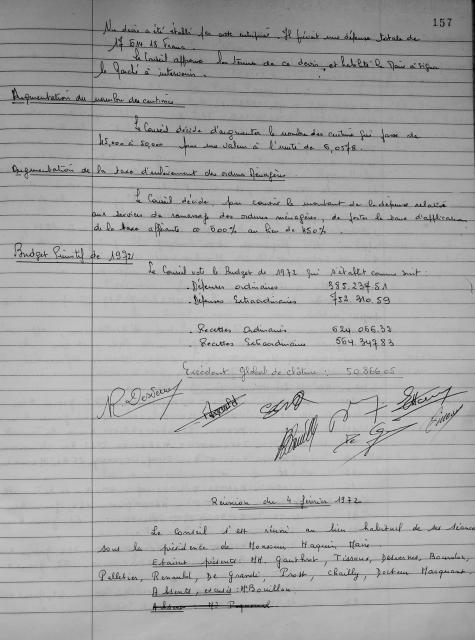 157
Un devis a été établi par cette entreprise. Il prévoit une dépense totale de
17 614 18 Francs.
Le Conseil approuve les termes de ce devis, et habilite le Maire à signer
le Marché à intervenir.
Augmentation du nombre des centimes
Le Conseil décide d'augmenter le nombre des centimes qui passe de
45,000 à 50,000 pour une valeur à l'unité de 6,0578.
Augmentation de la taxe d'enlèvement des ordures ménagères
Le Conseil décide, pour couvrir le montant de la dépense relative
aux services de ramassage des ordures ménagères, de porter le taux d'application
de la taxe afférente à 500% au lieu de 450%.
Budget Primitif de 1972
Le Conseil vote le Budget de 1972 qui s'établit comme suit :
. Dépenses ordinaires 385.237.51
. Dépenses Extraordinaires 752.310.59
. Recettes Ordinaires 624.066.32
. Recettes Extraordinaires 564.347.83
Excédent global de clôture : 50.866.05
Réunion du 4 février 1972
Le Conseil s'est réuni au lieu habituel de ses séances
sous la présidence de Monsieur Maquin Maire
Etaient présents : MM. Gauthrot, Tissans, Desvernes, Bourdon,
Pelletier, Renauld, De Grandi, Prost, Chailly, Docteur Marquant.
Absents, excusés : M. Bouillon